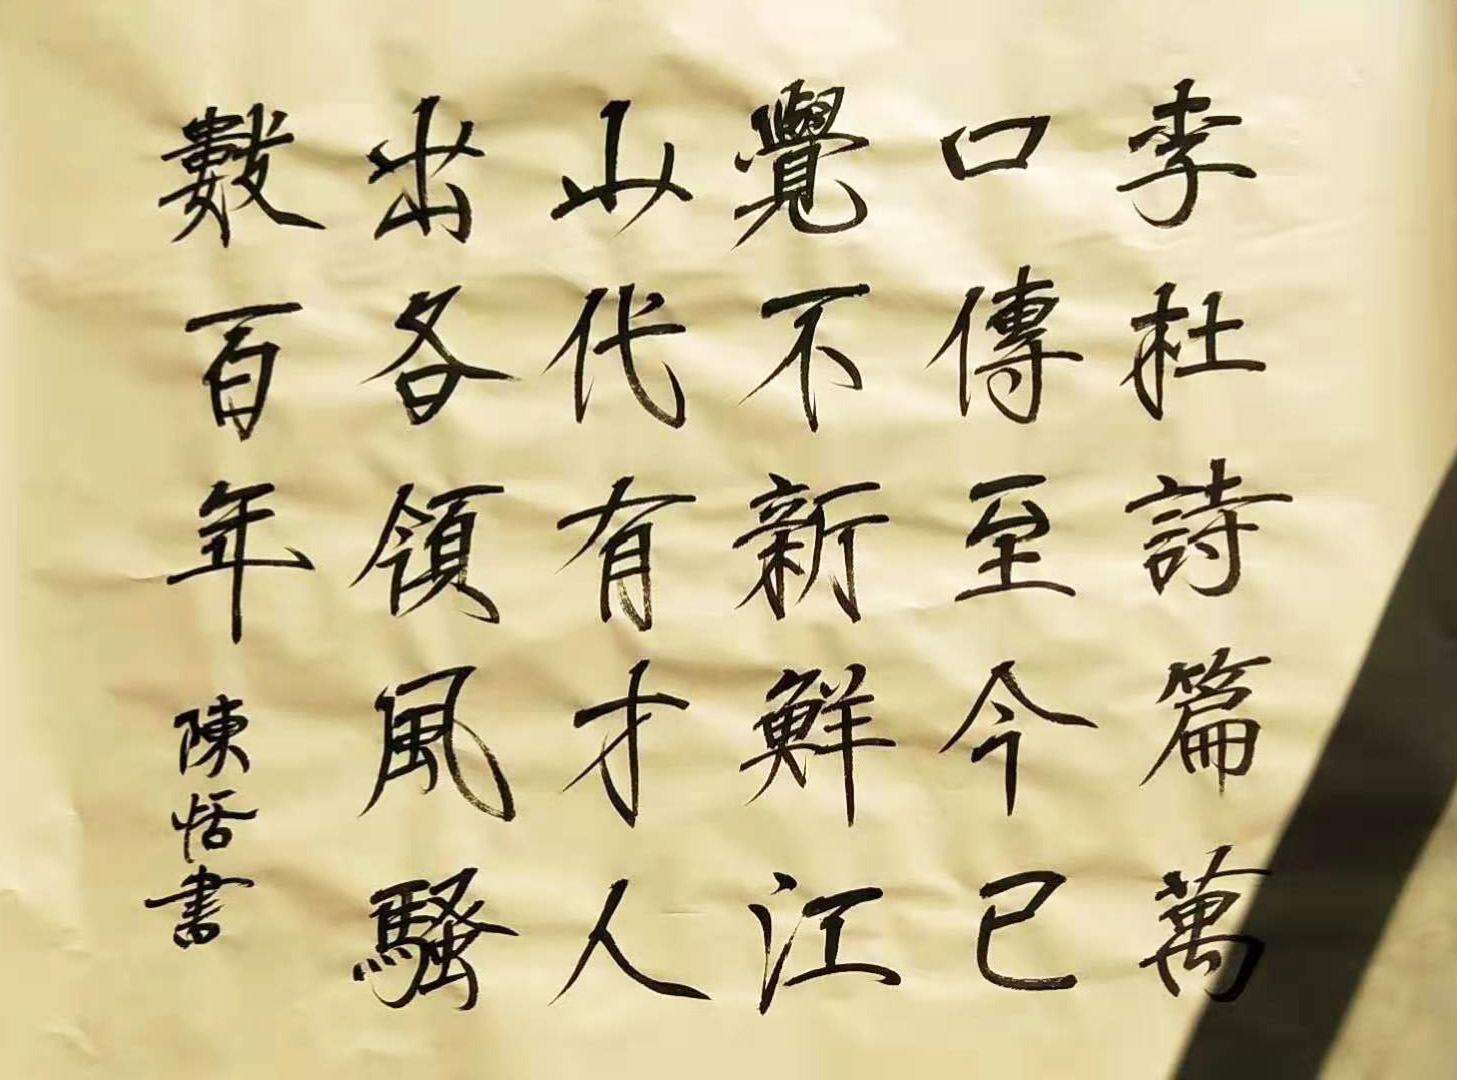 李杜詩篇萬
口傳至今已
覺不新鮮江
山代有才人
出各領風騷
數百年
陳恬書